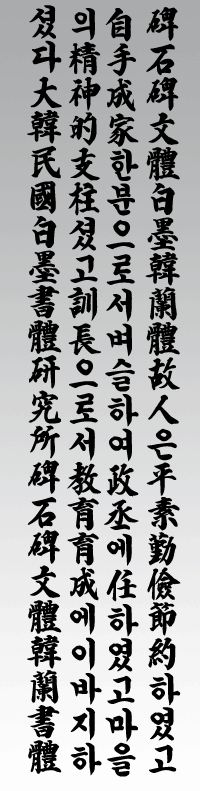 碑石碑文體白墨韓蘭體故人은平素勤儉節約하였고
自手成家한분으로서벼슬하여政丞에任하였고마을
의精神的支柱셨고訓長으로서敎育育成에이바지하
셨다大韓民國白墨書體硏究所碑石碑文體韓蘭書體